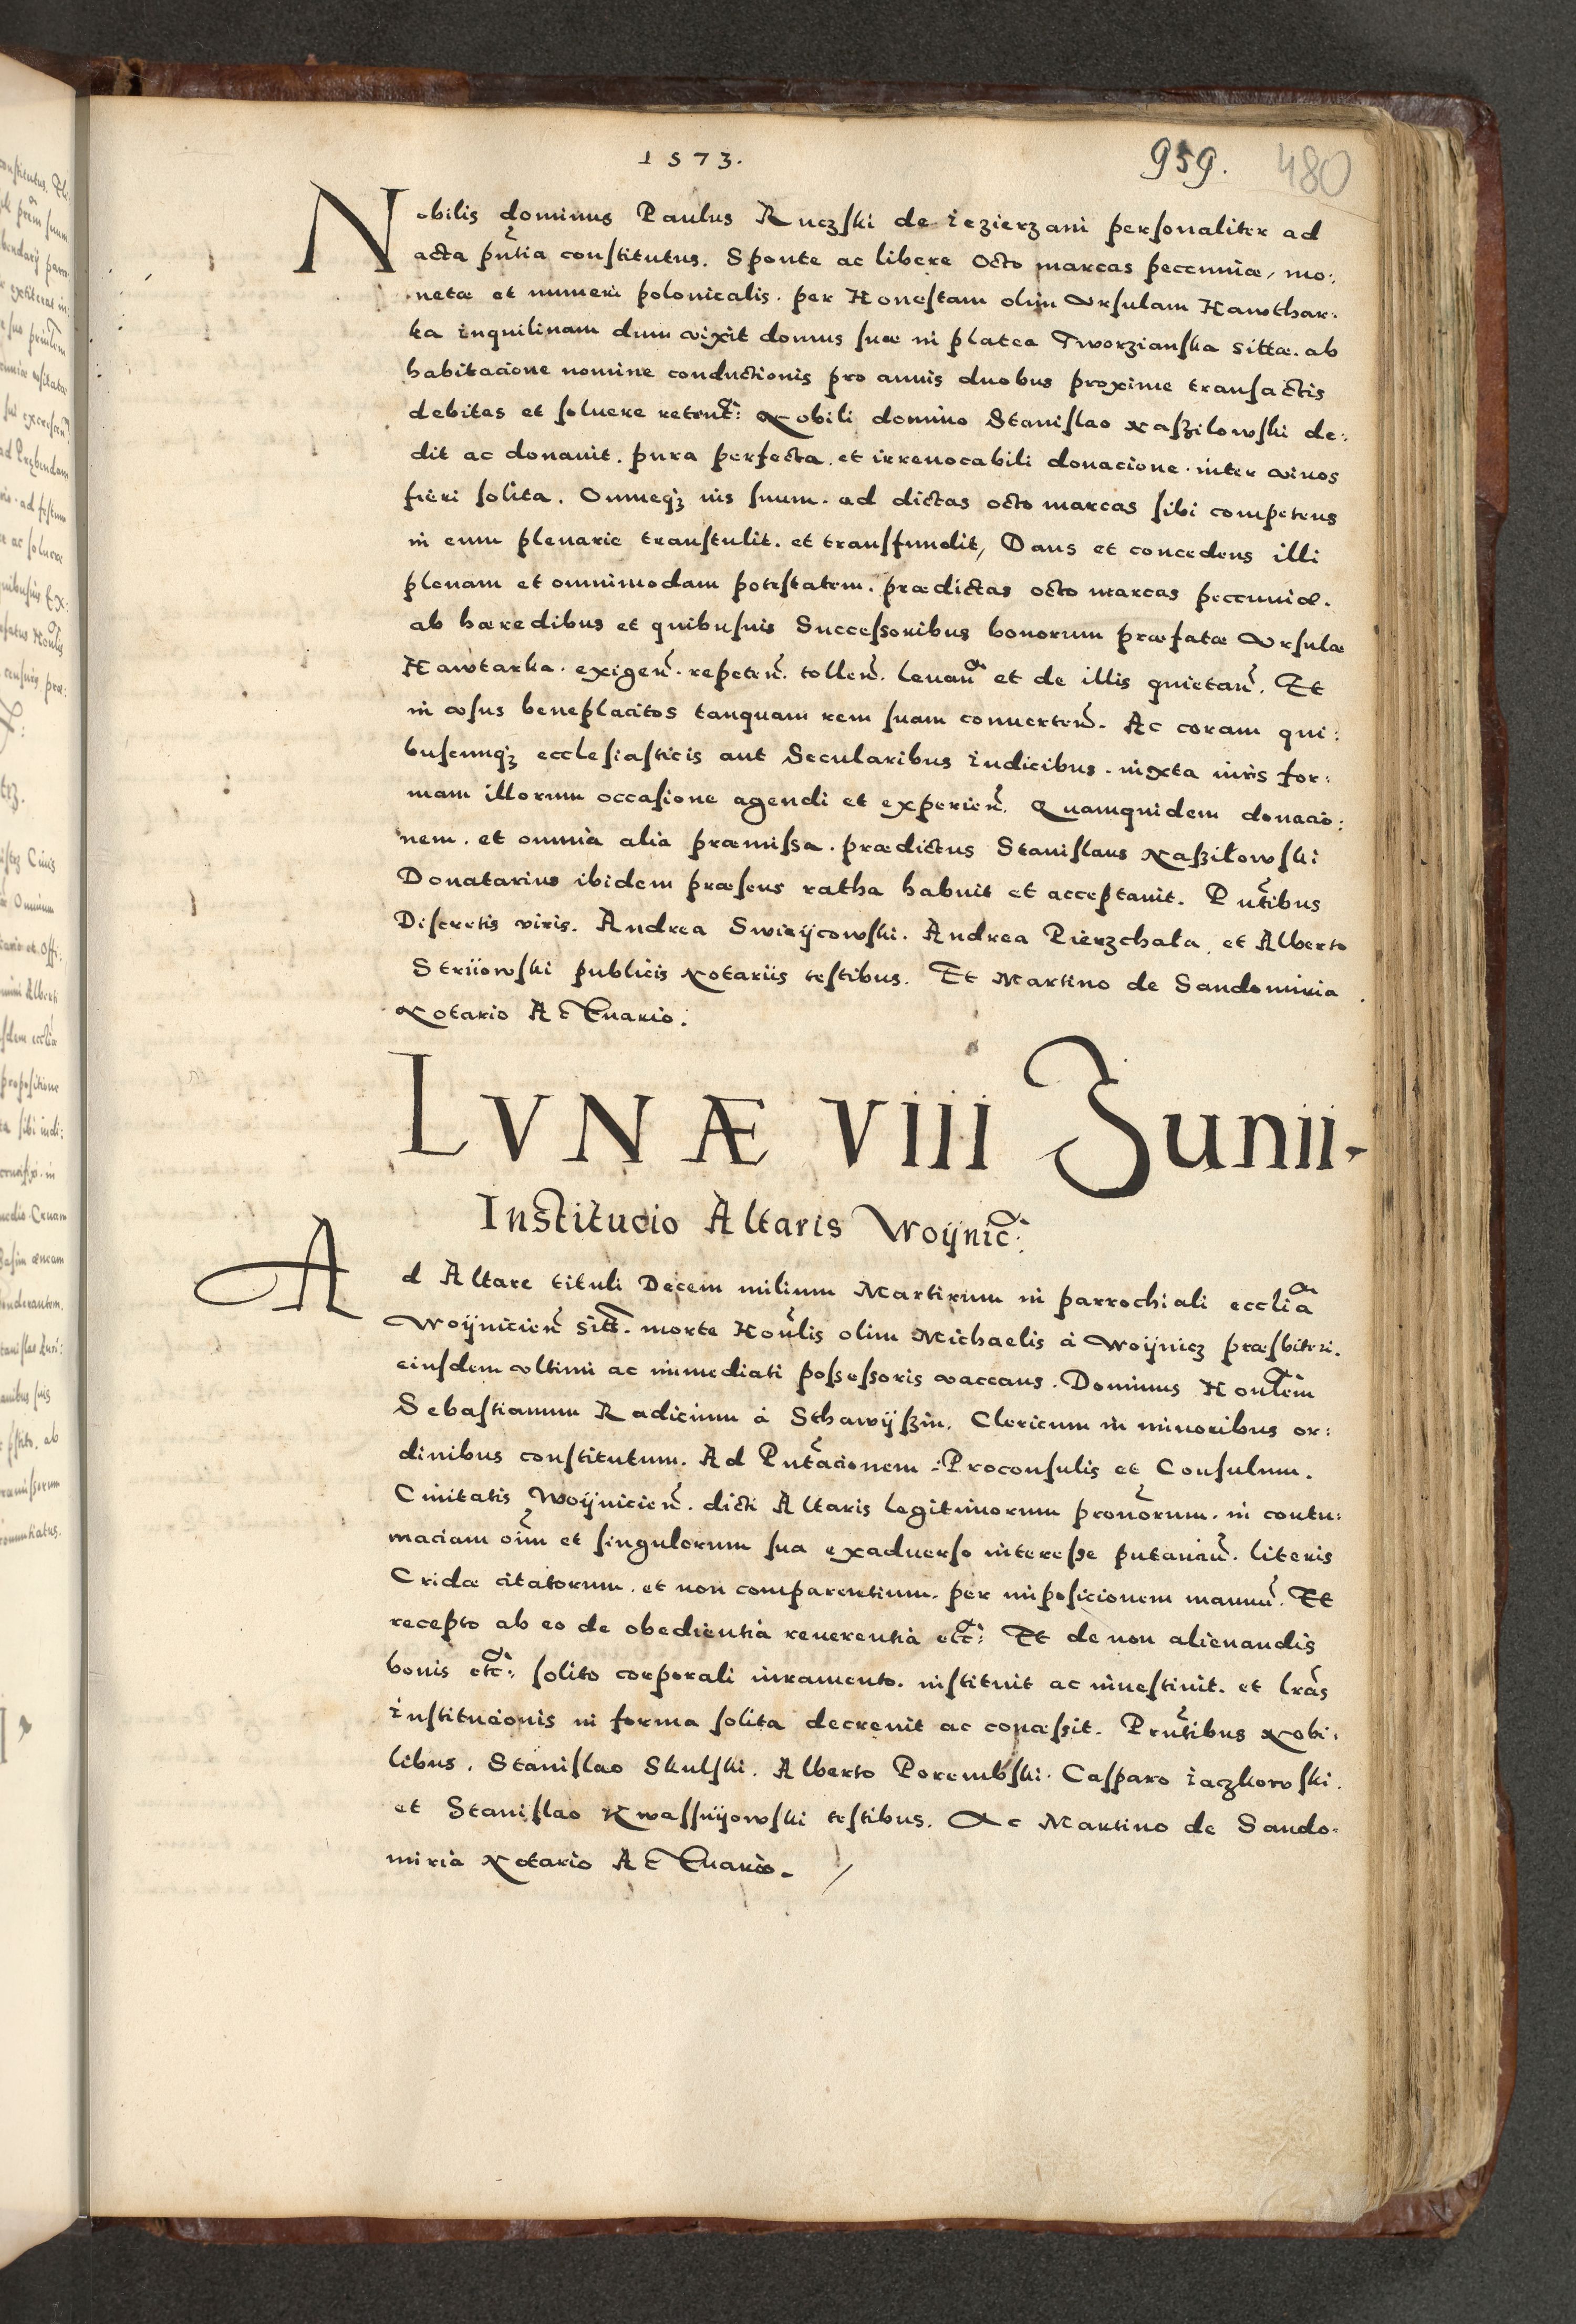 1573.
959. 480
Nobilis dominus Paulus Ruczski de iezierzani personaliter ad
acta pñtia constitutus. Sponte ac libere Octo marcas peccuniæ, mo:
netæ et numeri polonicalis. per Honestam olim Vrsulam Hawthar:
ka inquilinam dum vixit domus suæ in platea Tworzianska sittæ. ab
habitacione nomine conductionis pro annis duobus proxime transactis
debitas et soluere retent: Nobili domino Stanislao Naszilowski de:
dit ac donauit. pura perfecta. et irreuocabili donacione. inter viuos
fieri solita. Omneqz ius suum. ad dictas octo marcas sibi competens
in eum plenarie transtulit. et transfundit, Dans et concedens illi
plenam et omnimodam potestatem. prædictas octo marcas peccuniæ.
ab hæredibus et quibusuis Successoribus bonorum præfatæ Vrsulæ
Hawtarka. exigeñ. repeteñ. tolleñ. leuañ et de illis quietañ. Et
in vsus beneplacitos tanquam rem suam conuerteñ. Ac coram qui:
buscunqz ecclesiasticis aut Secularibus iudicibus. iuxta iuris for:
mam illorum occasione agendi et experieñ. Quamquidem donacio:
nem. et omnia alia præmissa. prædictus Stanislaus Naszilowski
Donatarius ibidem præsens ratha habuit et acceptauit. Pñtibus
Discretis viris. Andrea Swieÿcowski. Andrea Pierzchala. et Alberto
Striiowski publicis Notariis testibus. Et Martino de Sandomiria
Notario Actuario.
LVNÆ VIII Junii.
Institucio Altaris Woÿnic:
Ad Altare tituli Decem milium Martirum in parrochiali ecclia
Woÿnicieñ sitt. morte Honlis olim Michaelis à Woÿnicz præsbiteri.
eiusdem vltimi ac immediati possessoris vaccans. Dominus Honlem
Sebastianum Radicium à Sthawÿszin. Clericum in minoribus or:
dinibus constitutum. Ad Pñtacionem Proconsulis et Consulum.
Ciuitatis Woÿnicieñ. dicti Altaris legitimorum pronorum. in contu:
maciam oim et singulorum sua exaduerso interesse putanciũ. literis
Cridæ citatorum. et non comparentium. per imposicionem manuũ. Et
recepto ab eo de obedientia reuerentia etc: Et de non alienandis
bonis etc: solito corporali iuramento. instituit ac inuestiuit. et lras
institucionis in forma solita decreuit ac concessit. Prñtibus Nobi:
libus. Stanislao Skulski. Alberto Porembski. Casparo iaczkowski.
et Stanislao Kwassnÿowski testibus. Ac Martino de Sando:
miria Notario Actuario.